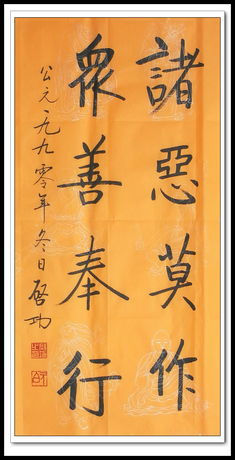 諸惡莫作
衆善奉行
公元一九九零年冬日啓功